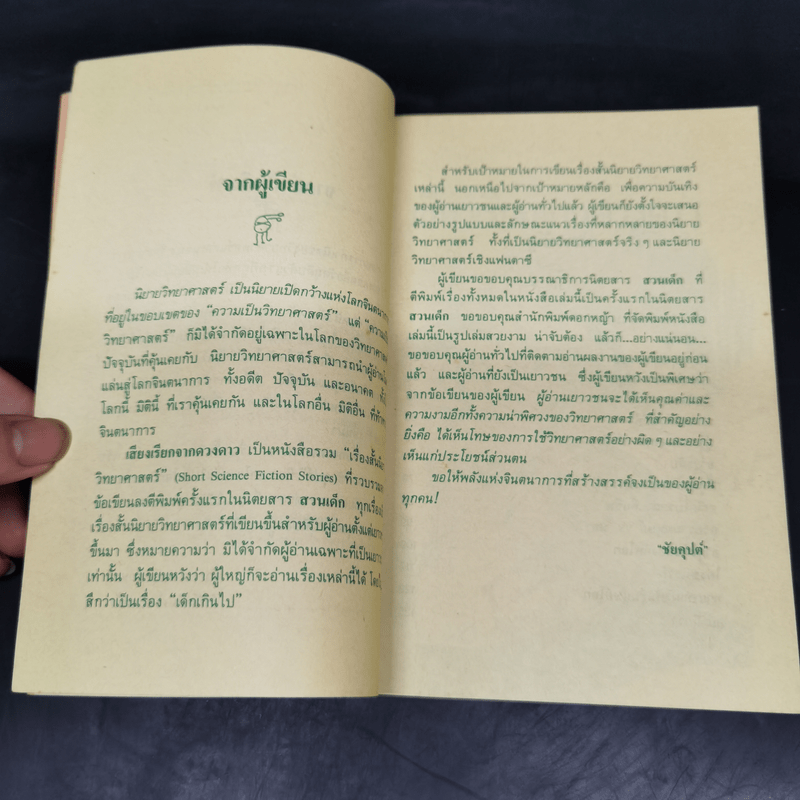 จากผู้เขียน
นิยายวิทยาศาสตร์ เป็นนิยายเปิดกว้างแห่งโลกจินตนาการ
ที่อยู่ในขอบเขตของ “ความเป็นวิทยาศาสตร์” แต่
วิทยาศาสตร์” ก็มิได้จำกัดอยู่เฉพาะในโลกของวิทยาศาส
ปัจจุบันที่คุ้นเคยกัน นิยายวิทยาศาสตร์สามารถนำผู้อ่าน
แล่นสู่โลกจินตนาการ ทั้งอดีต ปัจจุบัน และอนาคต
โลกนี้ มิตินี้ ที่เราคุ้นเคยกัน และในโลกอื่น มิติอื่น
จินตนาการ
เสียงเรียกจากดวงดาว เป็นหนังสือรวม “เรื่องสั้น
วิทยาศาสตร์” (Short Science Fiction Stories) ที่รวบรวม
ข้อเขียนลงตีพิมพ์ครั้งแรกในนิตยสาร สวนเด็ก ทุกเรื่อง
เรื่องสั้นนิยายวิทยาศาสตร์ที่เขียนขึ้นสำหรับผู้อ่านตั้งแต่
ขึ้นมา ซึ่งหมายความว่า มิได้จำกัดผู้อ่านเฉพาะที่เป็น
เท่านั้น ผู้เขียนหวังว่า ผู้ใหญ่ก็จะอ่านเรื่องเหล่านี้ได้
สึกว่าเป็นเรื่อง “เด็กเกินไป”
สำหรับเป้าหมายในการเขียนเรื่องสั้นนิยายวิทยาศาสตร์
เหล่านี้ นอกเหนือไปจากเป้าหมายหลักคือ เพื่อความบันเทิง
ของผู้อ่านเยาวชนและผู้อ่านทั่วไปแล้ว ผู้เขียนก็ยังตั้งใจจะเสนอ
ตัวอย่างรูปแบบและลักษณะแนวเรื่องที่หลากหลายของนิยาย
วิทยาศาสตร์ ทั้งที่เป็นนิยายวิทยาศาสตร์จริง ๆ และนิยาย
วิทยาศาสตร์เชิงแฟนตาซี
ผู้เขียนขอขอบคุณบรรณาธิการนิตยสาร สวนเด็ก ที่
ตีพิมพ์เรื่องทั้งหมดในหนังสือเล่มนี้เป็นครั้งแรกในนิตยสาร
สวนเด็ก ขอขอบคุณสำนักพิมพ์ดอกหญ้า ที่จัดพิมพ์หนังสือ
เล่มนี้เป็นรูปเล่มสวยงาม น่าจับต้อง แล้วก็...อย่างแน่นอน...
ขอขอบคุณผู้อ่านทั่วไปที่ติดตามอ่านผลงานของผู้เขียนอยู่ก่อน
แล้ว และผู้อ่านที่ยังเป็นเยาวชน ซึ่งผู้เขียนหวังเป็นพิเศษว่า
จากข้อเขียนของผู้เขียน ผู้อ่านเยาวชนจะได้เห็นคุณค่าและ
ความงามอีกทั้งความน่าพิศวงของวิทยาศาสตร์ ที่สำคัญอย่าง
ยิ่งคือ ได้เห็นโทษของการใช้วิทยาศาสตร์อย่างผิด ๆ และอย่าง
เห็นแก่ประโยชน์ส่วนตน
ขอให้พลังแห่งจินตนาการที่สร้างสรรค์จงเป็นของผู้อ่าน
ทุกคน!
"ชัยคุปต์"